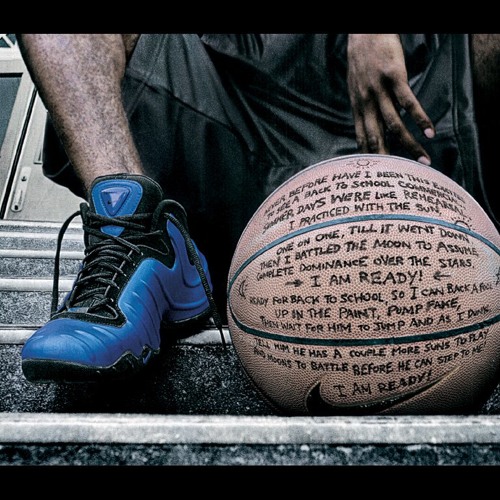 NEVER BEFORE HAVE I BEEN THIS EAGER
TO SEE A BACK TO SCHOOL COMMERCIAL.
SUMMER DAYS WERE LIKE REHEARSAL,
I PRACTICED WITH THE SUN,
ONE ON ONE, TILL IT WENT DOWN
THEN I BATTLED THE MOON TO ASSUME
COMPLETE DOMINANCE OVER THE STARS.
I AM READY!
READY FOR BACK TO SCHOOL, SO I CAN BACK A FOOL
UP IN THE PAINT, PUMP FAKE,
THEN WAIT FOR HIM TO JUMP AND AS I DUNK
TELL HIM HE HAS A COUPLE MORE SUNS TO PLAY
AND MOONS TO BATTLE BEFORE HE CAN STEP TO ME
I AM READY!